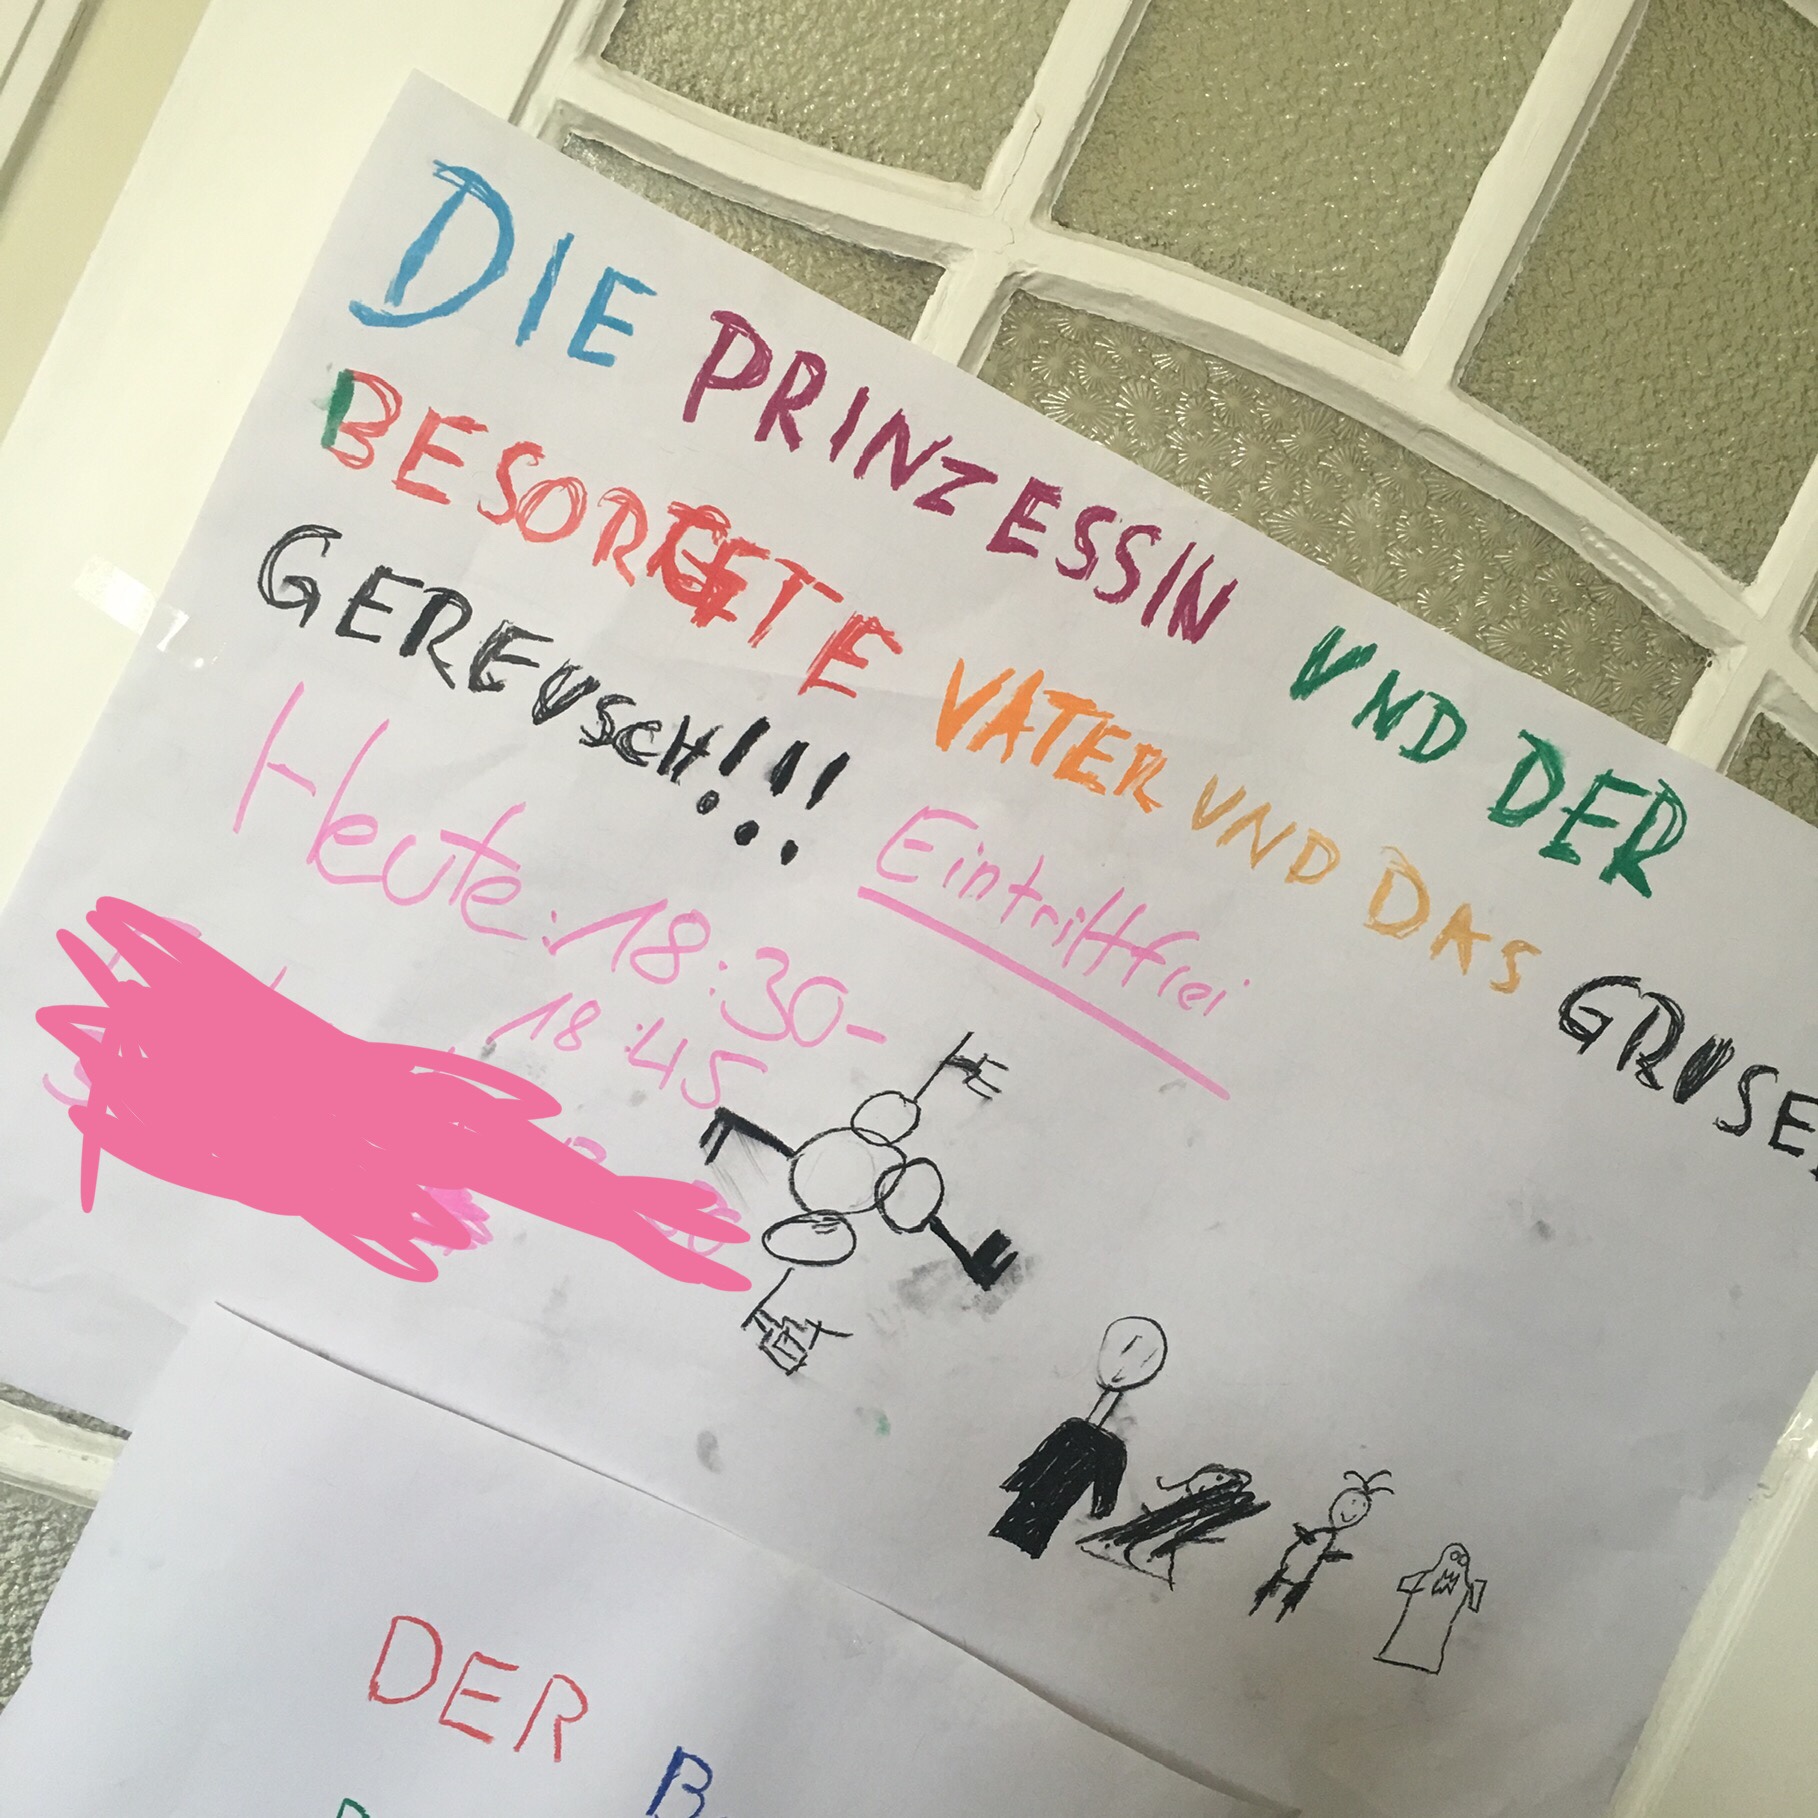 DIE PRINZESSIN UND DER
BESORGTE VATER UND DAS GRUSE
GEREUSCH!!!
Eintritt frei
Heute: 18:30-
18:45
DER B